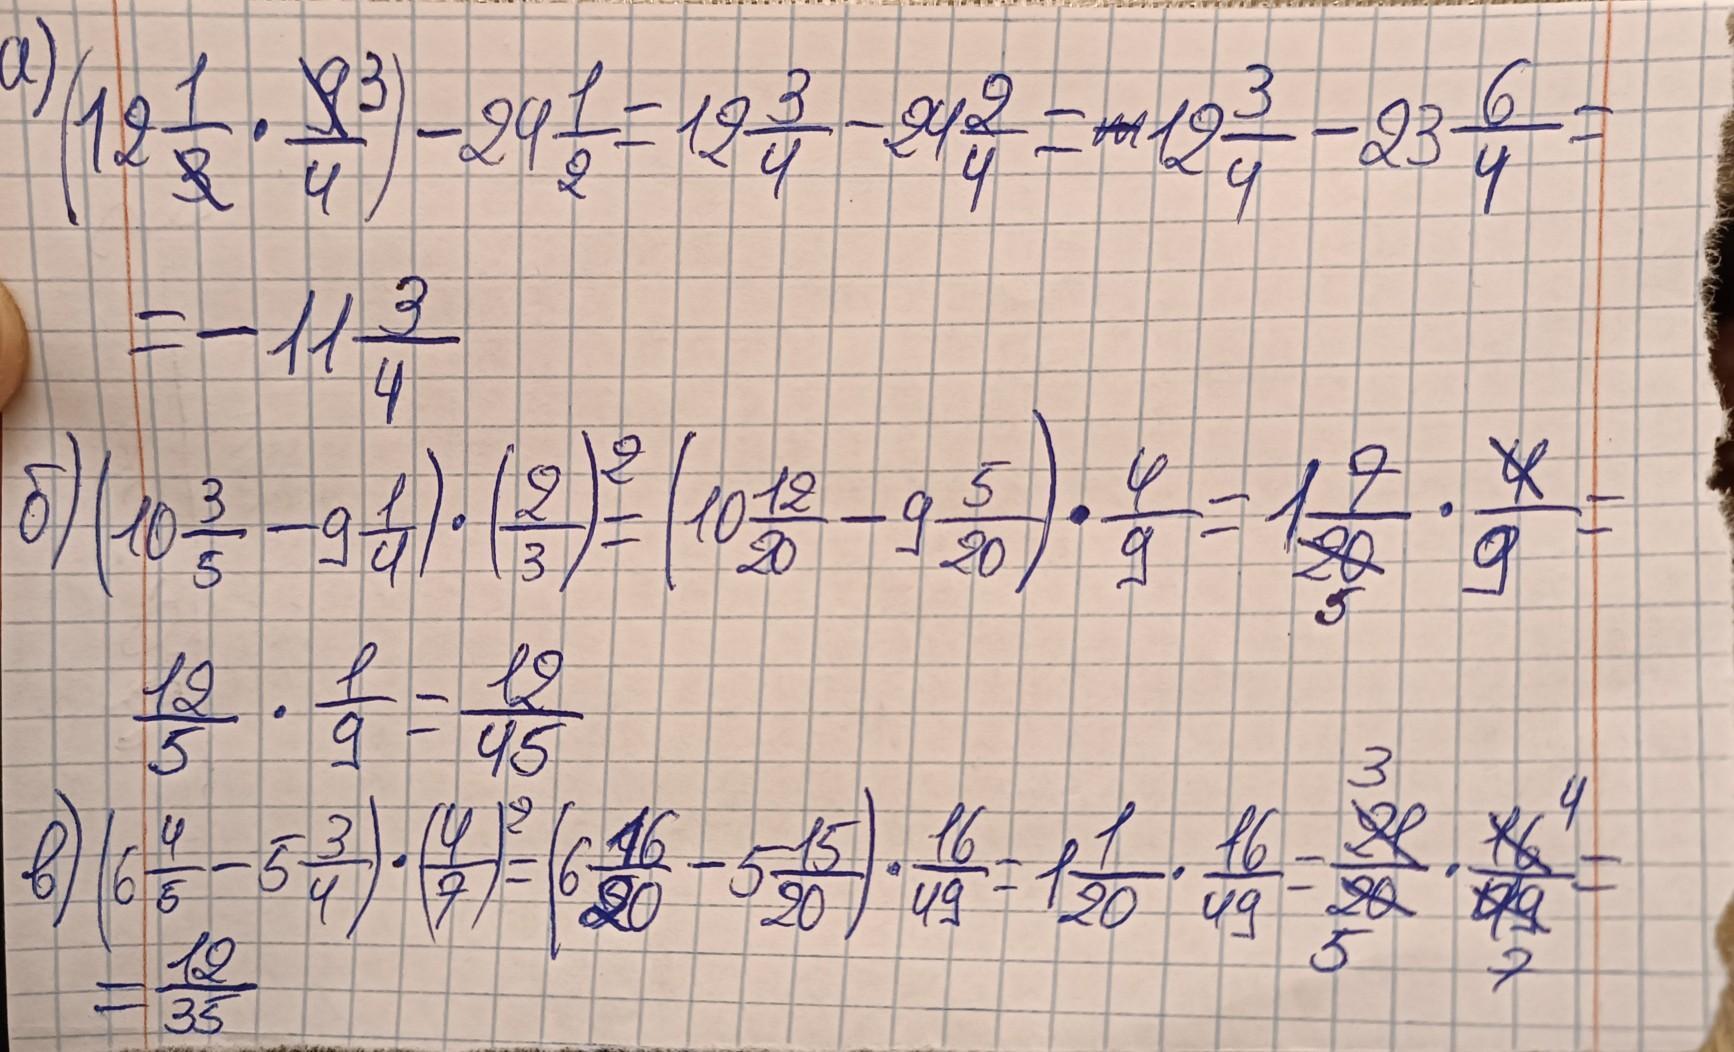 а) (12 1/3 · 9/4 3) - 24 1/2 = 12 3/4 - 24 2/4 = 12 3/4 - 23 6/4 =
= - 11 3/4
б) (10 3/5 - 9 1/4) · (2/3)² = (10 12/20 - 9 5/20) · 4/9 = 1 7/20 5 · 4/9 =
12/5 · 1/9 = 12/45
в) (6 4/5 - 5 3/4) · (4/7)² = (6 16/20 - 5 15/20) · 16/49 = 1 1/20 · 16/49 = 3 21/20 5 · 16 4/49 7 =
= 12/35